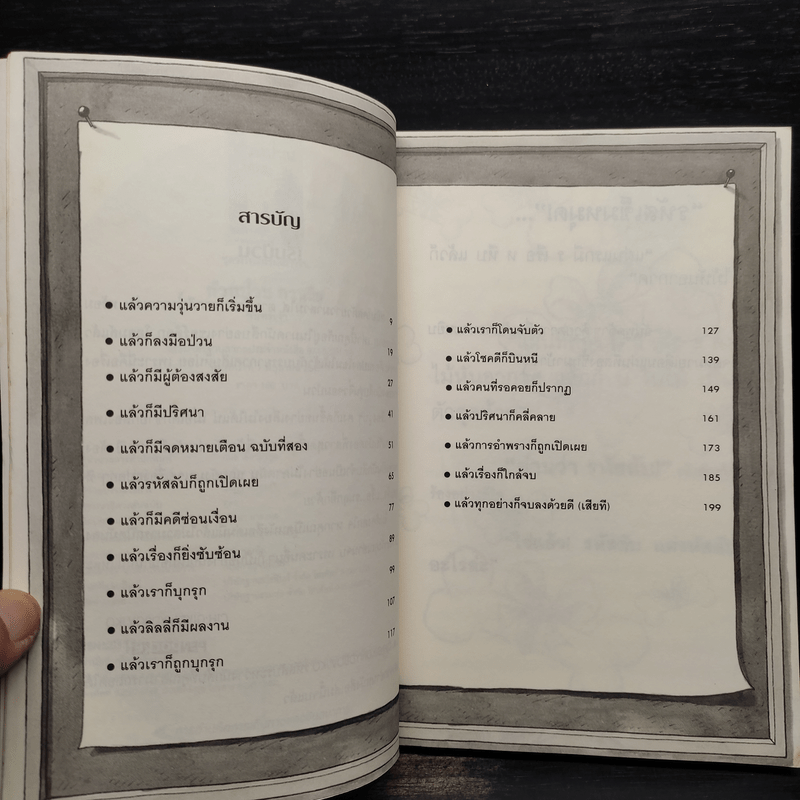 สารบัญ
แล้วความวุ่นวายก็เริ่มขึ้น 9
แล้วก็ลงมือป่วน 19
แล้วก็มีผู้ต้องสงสัย 27
แล้วก็มีปริศนา 41
แล้วก็มีจดหมายเตือน ฉบับที่สอง 51
แล้วรหัสลับก็ถูกเปิดเผย 65
แล้วก็มีคดีซ่อนเงื่อน 77
แล้วเรื่องก็ยิ่งซับซ้อน 89
แล้วเราก็บุกรุก 99
แล้วลิลลี่ก็มีผลงาน 107
แล้วเราก็ถูกบุกรุก 117
แล้วเราก็โดนจับตัว 127
แล้วโชคดีก็บินหนี 139
แล้วคนที่รอคอยก็ปรากฏ 149
แล้วปริศนาก็คลี่คลาย 161
แล้วการอำพรางก็ถูกเปิดเผย 173
แล้วเรื่องก็ใกล้จบ 185
แล้วทุกอย่างก็จบลงด้วยดี (เสียที) 199